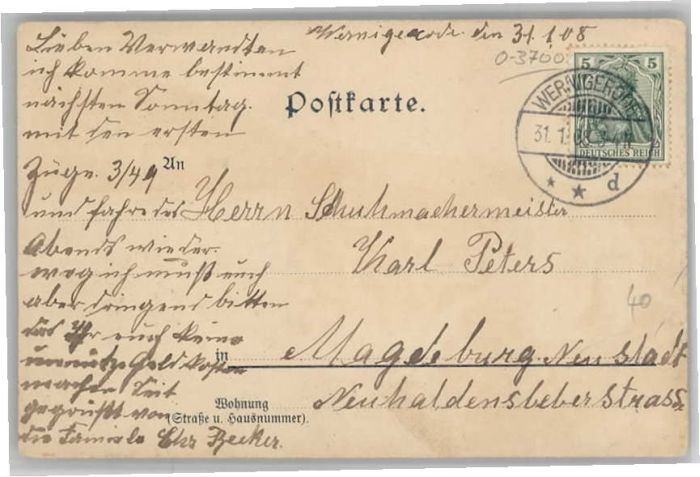 Wernigerode den 31.1.08
Lieben Verwandten
ich komme bestimmt
nächsten Sonntag.
mit den ersten
Zuge. 3/49
und fahre des
Abends wieder.
weg ich muß euch
aber dringend bitten
das Ihr euch keine
unnütze Geldkosten
machen Seit
gegrüßt von
die Familie Chr Becker.
0-3700
5 5
DEUTSCHES REICH
WERNIGERODE
31.1.08
d
Postkarte.
An
Herrn Schuhmachermeister
Karl Peters
40
in Magdeburg Neustadt
Neuhaldensleberstrasse
Wohnung
(Straße u. Hausnummer).